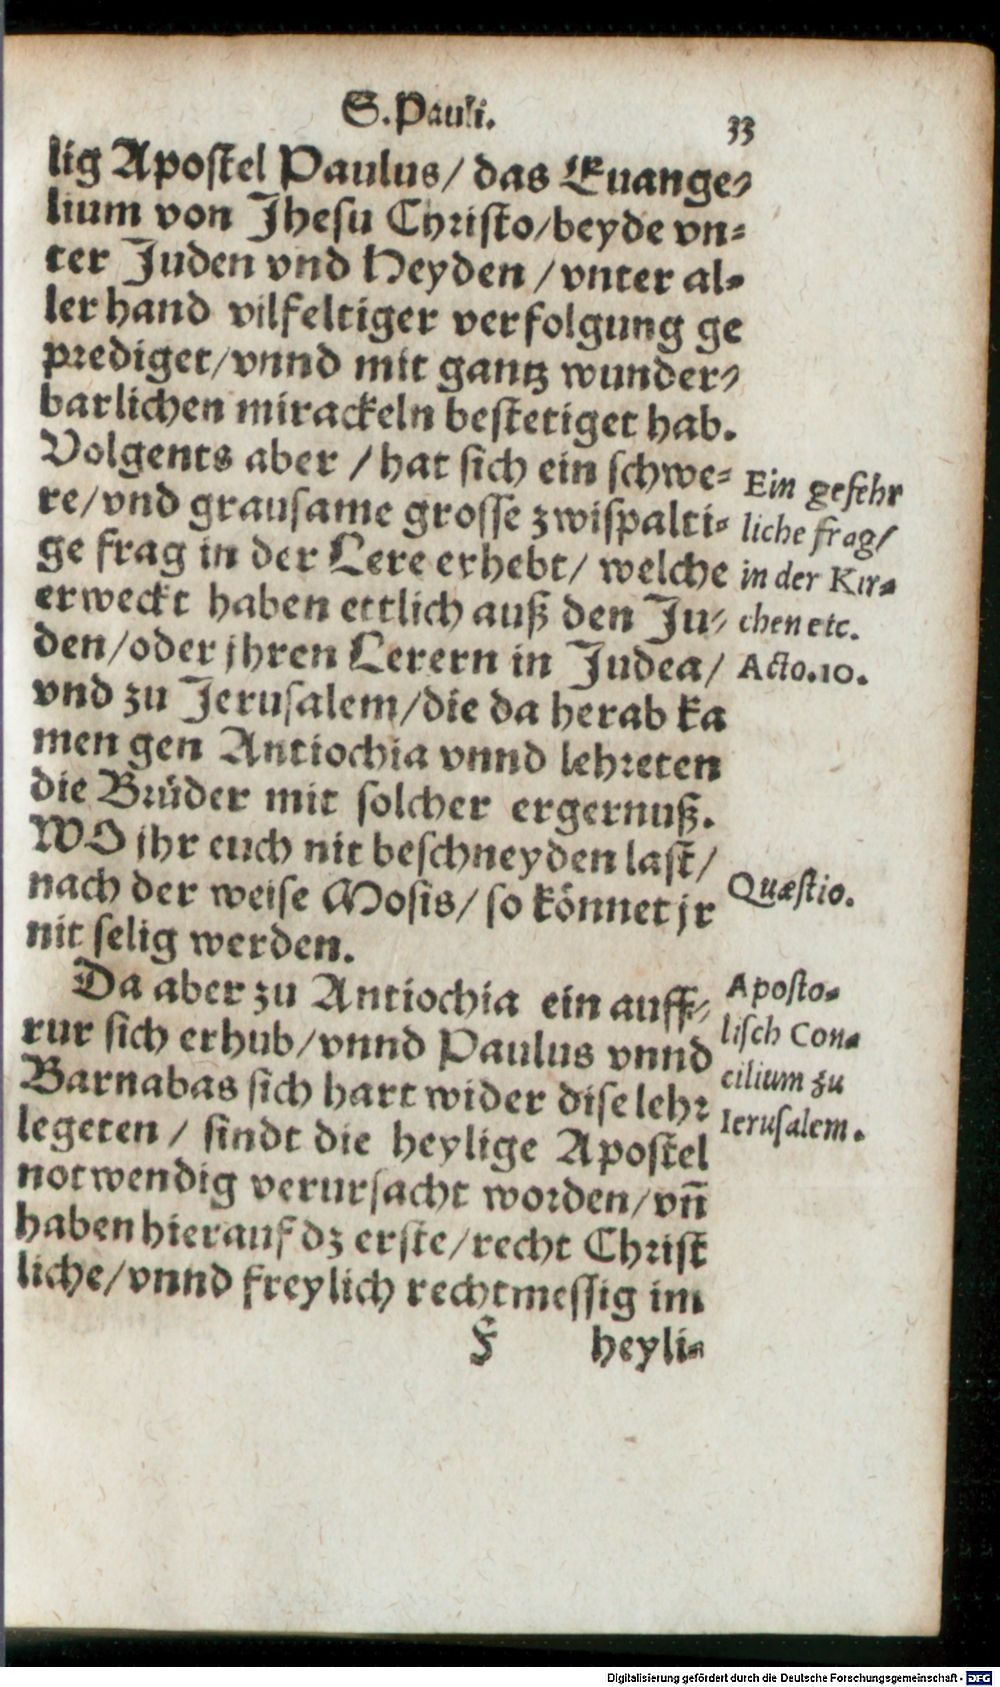 S. Pauli.
33
lig Apostel Paulus/ das Euange-
lium von Jhesu Christo/beyde vn-
ter Juden vnd Heyden /vnter al-
ler hand vilfeltiger verfolgung ge
prediget/vnnd mit gantz wunder-
barlichen mirackeln bestetiget hab.
Volgents aber /hat sich ein schwe-
re/vnd grausame grosse zwispalti-
ge frag in der Lere erhebt/ welche
erweckt haben ettlich auß den Ju-
den/oder jhren Lerern in Judea/
vnd zu Jerusalem/die da herab ka
men gen Antiochia vnnd lehreten
die Brüder mit solcher ergernuß.
WO jhr euch nit beschneyden last/
nach der weise Mosis/ so könnet jr
nit selig werden.
Ein gefehr
liche frag/
in der Kir-
chen etc.
Acto.10.
Quæstio.
Da aber zu Antiochia ein auff-
rur sich erhub/vnnd Paulus vnnd
Barnabas sich hart wider dise lehr
legeten / sindt die heylige Apostel
notwendig verursacht worden/vñ
haben hierauf dz erste/recht Christ
liche/vnnd freylich rechtmessig im
Aposto-
lisch Con-
cilium zu
Ierusalem.
F heyli-
Digitalisierung gefördert durch die Deutsche Forschungsgemeinschaft - DFG